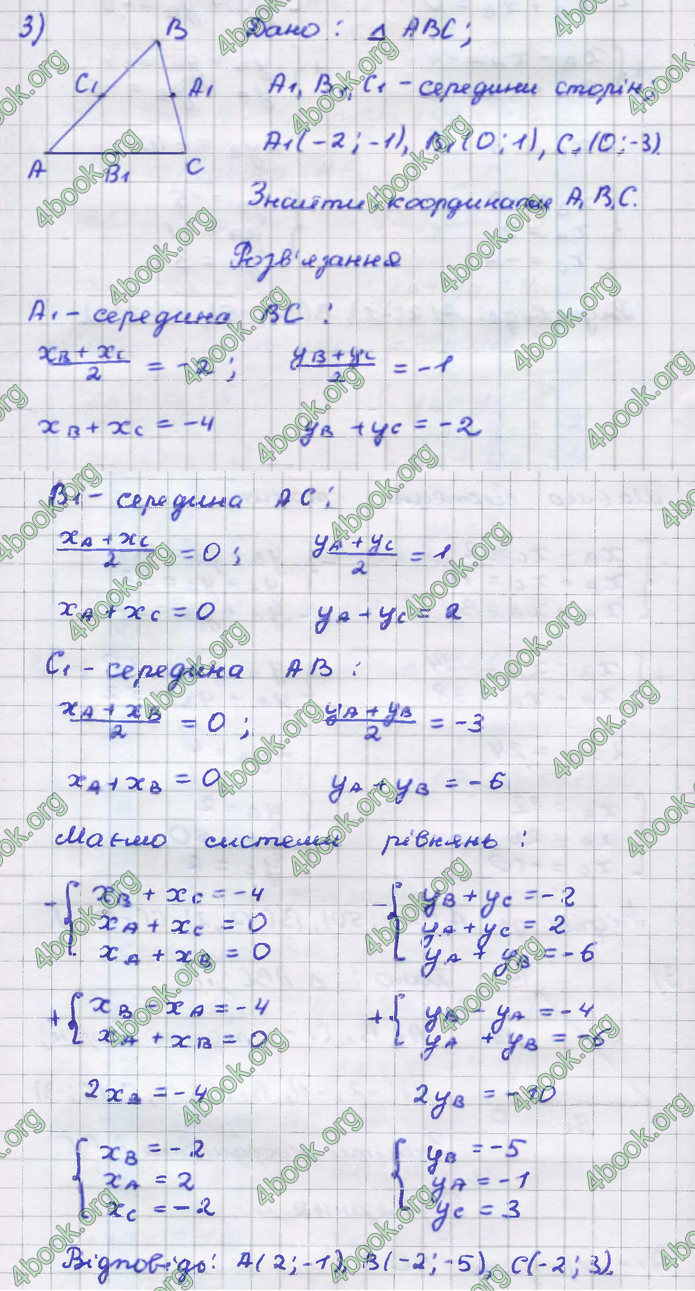 3)
B
C₁
A₁
A
B₁
C
Дано: Δ ABC;
A₁, B₁, C₁ - середини сторін;
A₁(-2; -1), B₁(0; 1), C₁(0; -3).
Знайти: координати A, B, C.
Розв'язання
A₁ - середина BC:
(x_B + x_C)/2 = -2; (y_B + y_C)/2 = -1
x_B + x_C = -4 y_B + y_C = -2
B₁ - середина AC:
(x_A + x_C)/2 = 0; (y_A + y_C)/2 = 1
x_A + x_C = 0 y_A + y_C = 2
C₁ - середина AB:
(x_A + x_B)/2 = 0; (y_A + y_B)/2 = -3
x_A + x_B = 0 y_A + y_B = -6
Маємо системи рівнянь:
- { x_B + x_C = -4 - { y_B + y_C = -2
x_A + x_C = 0 y_A + y_C = 2
x_A + x_B = 0 y_A + y_B = -6
+ { x_B - x_A = -4 + { y_B - y_A = -4
x_A + x_B = 0 y_A + y_B = -6
2x_B = -4 2y_B = -10
{ x_B = -2 { y_B = -5
x_A = 2 y_A = -1
x_C = -2 y_C = 3
Відповідь: A(2; -1), B(-2; -5), C(-2; 3).
4book.org